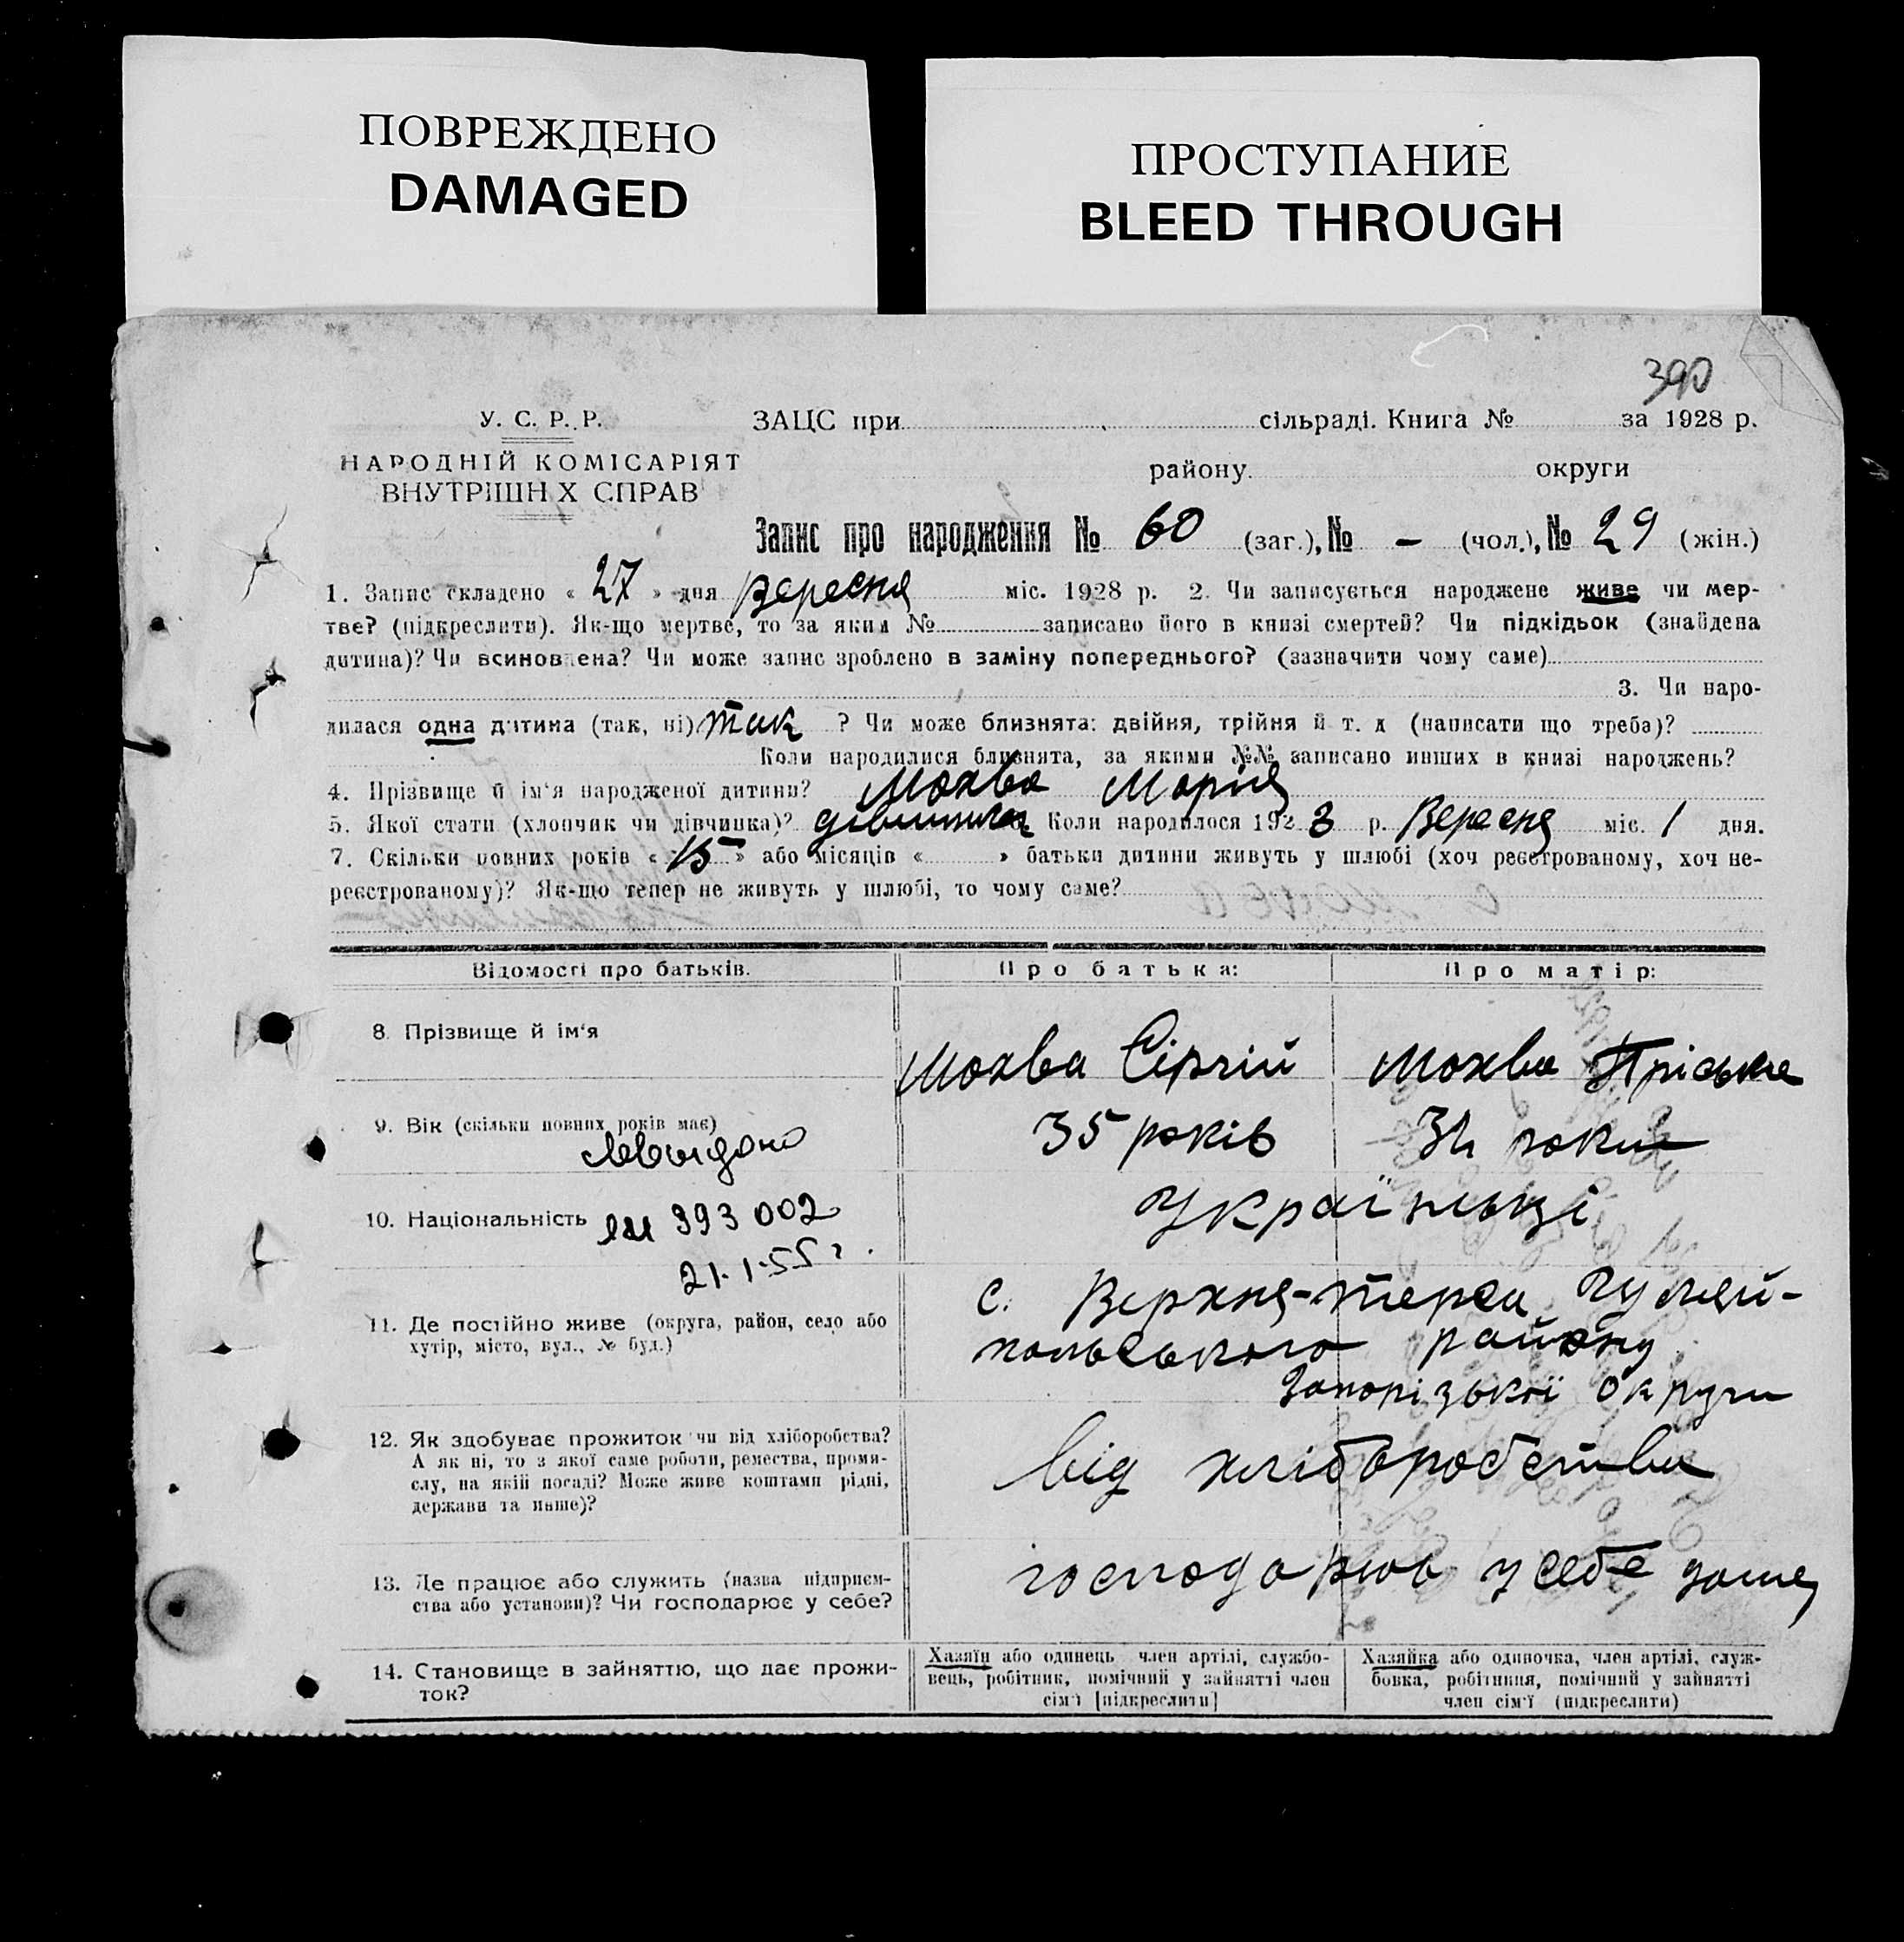 ПОВРЕЖДЕНО
DAMAGED
ПРОСТУПАНИЕ
BLEED THROUGH
390
У. С. Р. Р.
НАРОДНІЙ КОМІСАРІЯТ
ВНУТРІШН Х СПРАВ
ЗАЦС при сільраді. Книга № за 1928 р.
району. округи
Запис про народження № 60 (заг.), № - (чол.), № 29 (жін.)
1. Запис складено « 27 » дня Вересня міс. 1928 р. 2. Чи записується народжене живе чи мер-
тве? (підкреслити). Як-що мертве, то за яким № записано його в книзі смертей? Чи підкідьок (знайдена
дитина)? Чи всиновлена? Чи може запис зроблено в заміну попереднього? (зазначити чому саме)
3. Чи наро-
дилася одна дитина (так, ні) так ? Чи може близнята: двійня, трійня й т. д (написати що треба)?
Коли народилися близнята, за якими №№ записано инших в книзі народжень?
4. Прізвище й ім'я народженої дитини? Мохва Марія
5. Якої стати (хлопчик чи дівчинка)? дівчинка 6. Коли народилося 1928 р. Вересня міс. 1 дня.
7. Скільки повних років « 15 » або місяців « » батьки дитини живуть у шлюбі (хоч реєстрованому, хоч не-
реєстрованому)? Як-що тепер не живуть у шлюбі, то чому саме?
Відомості про батьків. Про батька: Про матір:
8. Прізвище й ім'я Мохва Сіргій Мохва Пріська
9. Вік (скільки повних років має) 35 років 34 роки
10. Національність Українці
393 002
21.1.55 г.
11. Де постійно живе (округа, район, село або
хутір, місто, вул., № буд.)
с. Верхня-терса Гуляй-
польського району
Запорізької округи
12. Як здобуває прожиток чи від хліборобства?
А як ні, то з якої саме роботи, ремества, проми-
слу, на якій посаді? Може живе коштами рідні,
держави та инше)?
від хліборобства
13. Де працює або служить (назва підприєм-
ства або установи)? Чи господарює у себе?
господарює у себе дома
14. Становище в зайняттю, що дає прожи-
ток?
Хазяїн або одинець член артілі, службо-
вець, робітник, помічний у зайнятті член
сім'ї [підкреслити]
Хазяйка або одиночка, член артілі, служ-
бовка, робітниця, помічний у зайнятті
член сім'ї (підкреслити)